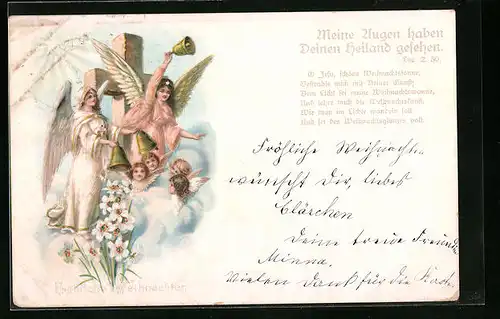 Meine Augen haben
Deinen Heiland gesehen.
Luc. 2. 30.
O Jesu, schöne Weihnachtssonne,
Bestrahle mich mit Deiner Gunst;
Dein Licht sei meine Weihnachtswonne,
Und lehre mich die Weihnachtskunst,
Wie man im Lichte wandeln soll
Und sei des Weihnachtsglanzes voll.
Fröhliche Weihnachten
wünscht Dir, liebes
Clärchen
Deine treue Freundin
Minna.
Vielen Dank für die Karte.
Fröhliche Weihnachten